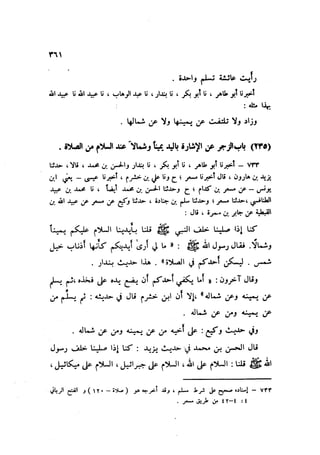 ٣٦١
رأيت عائشة تسلم واحدة .
أخبرنا أبو طاهر ، نا أبو بكر ، نا بندار ، نا عبد الوهاب ، نا عبيد الله نا عبد الله
بهذا مثله :
وزاد ولا تلتفت عن يمينها ولا عن شمالها .
(٢٣٥) باب الزجر عن الإشارة باليد يميناً وشمالاً عند السلام من الصلاة .
٧٣٣ – أخبرنا أبو طاهر ، نا أبو بكر ، نا بندار والحسن بن محمد ، قالا ، حدثنا
يزيد بن هارون ، قال أخبرنا مسعر ؛ ح ونا علي بن خشرم ، أخبرنا عيسى – يعني ابن
يونس – عن مسعر بن كدام ؛ ح وحدثنا الحسن بن محمد أيضاً ، نا محمد بن عبيد
الطنافسي، حدثنا مسعر ؛ وحدثنا سلم بن جنادة ، حدثنا وكيع عن مسعر عن عبيد الله بن
القبطية عن جابر بن سمرة ، قال :
كنا إذا صلينا خلف النبي ﷺ قلنا بأيدينا السلام عليكم يميناً
وشمالاً. فقال رسول الله ﷺ : « ما لي أرى أيديكم كأنها أذناب خيل
شمس . ليسكن أحدكم في الصلاة» . هذا حديث بندار .
وقال الآخرون : « أما يكفي أحدكم أن يضع يده على فخذه، ثم يسلم
عن يمينه وعن شماله» إلا أن ابن خشرم قال في حديثه : ثم يسلم من
عن يمينه ومن عن شماله .
وفي حديث وكيع : على أخيه من عن يمينه ومن عن شماله .
قال الحسن بن محمد في حديث يزيد : كنا إذا صلينا خلف رسول
الله ﷺ قلنا : السلام على الله ، السلام على جبرائيل ، السلام على ميكائيل ،
٧٣٣ – إسناده صحيح على شرط مسلم ، وقد أخرجه هو (صلاة – ١٢٠) و الفتح الرباني
٤ : ٤٢-٤ من طريق مسعر .